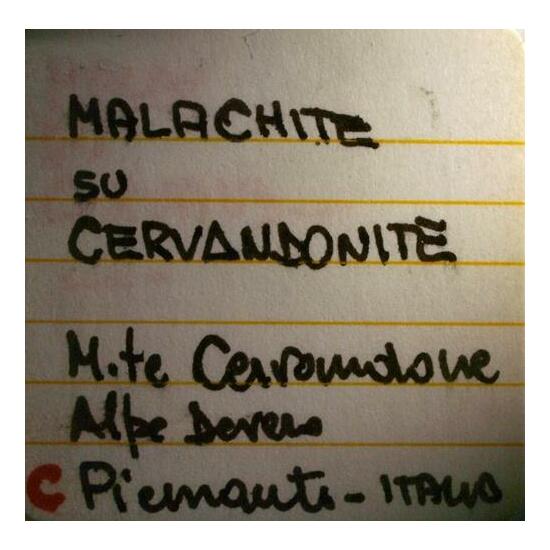 MALACHITE
SU
CERVANDONITE
M.te Cervandone
Alpe Devero
C Piemonte - ITALIA